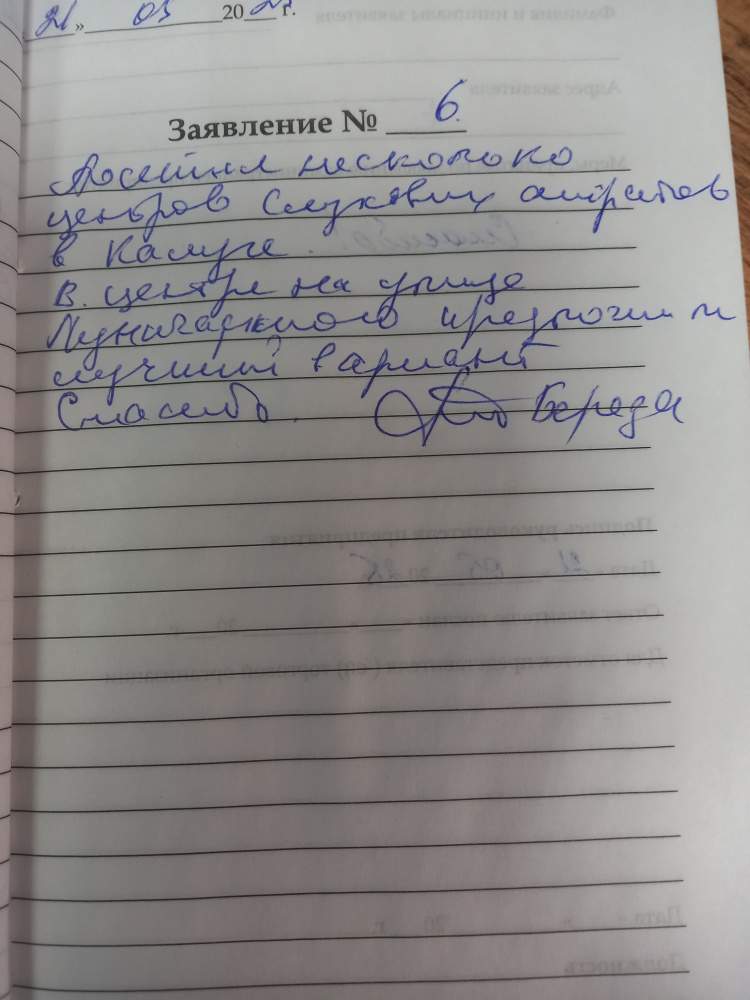 21 » 03 20 25 г.
Заявление № 6.
Посетил несколько
центров слуховых апаратов
в Калуге.
В центре на улице
Луначарского предложили
лучший вариант
Спасибо. Береда